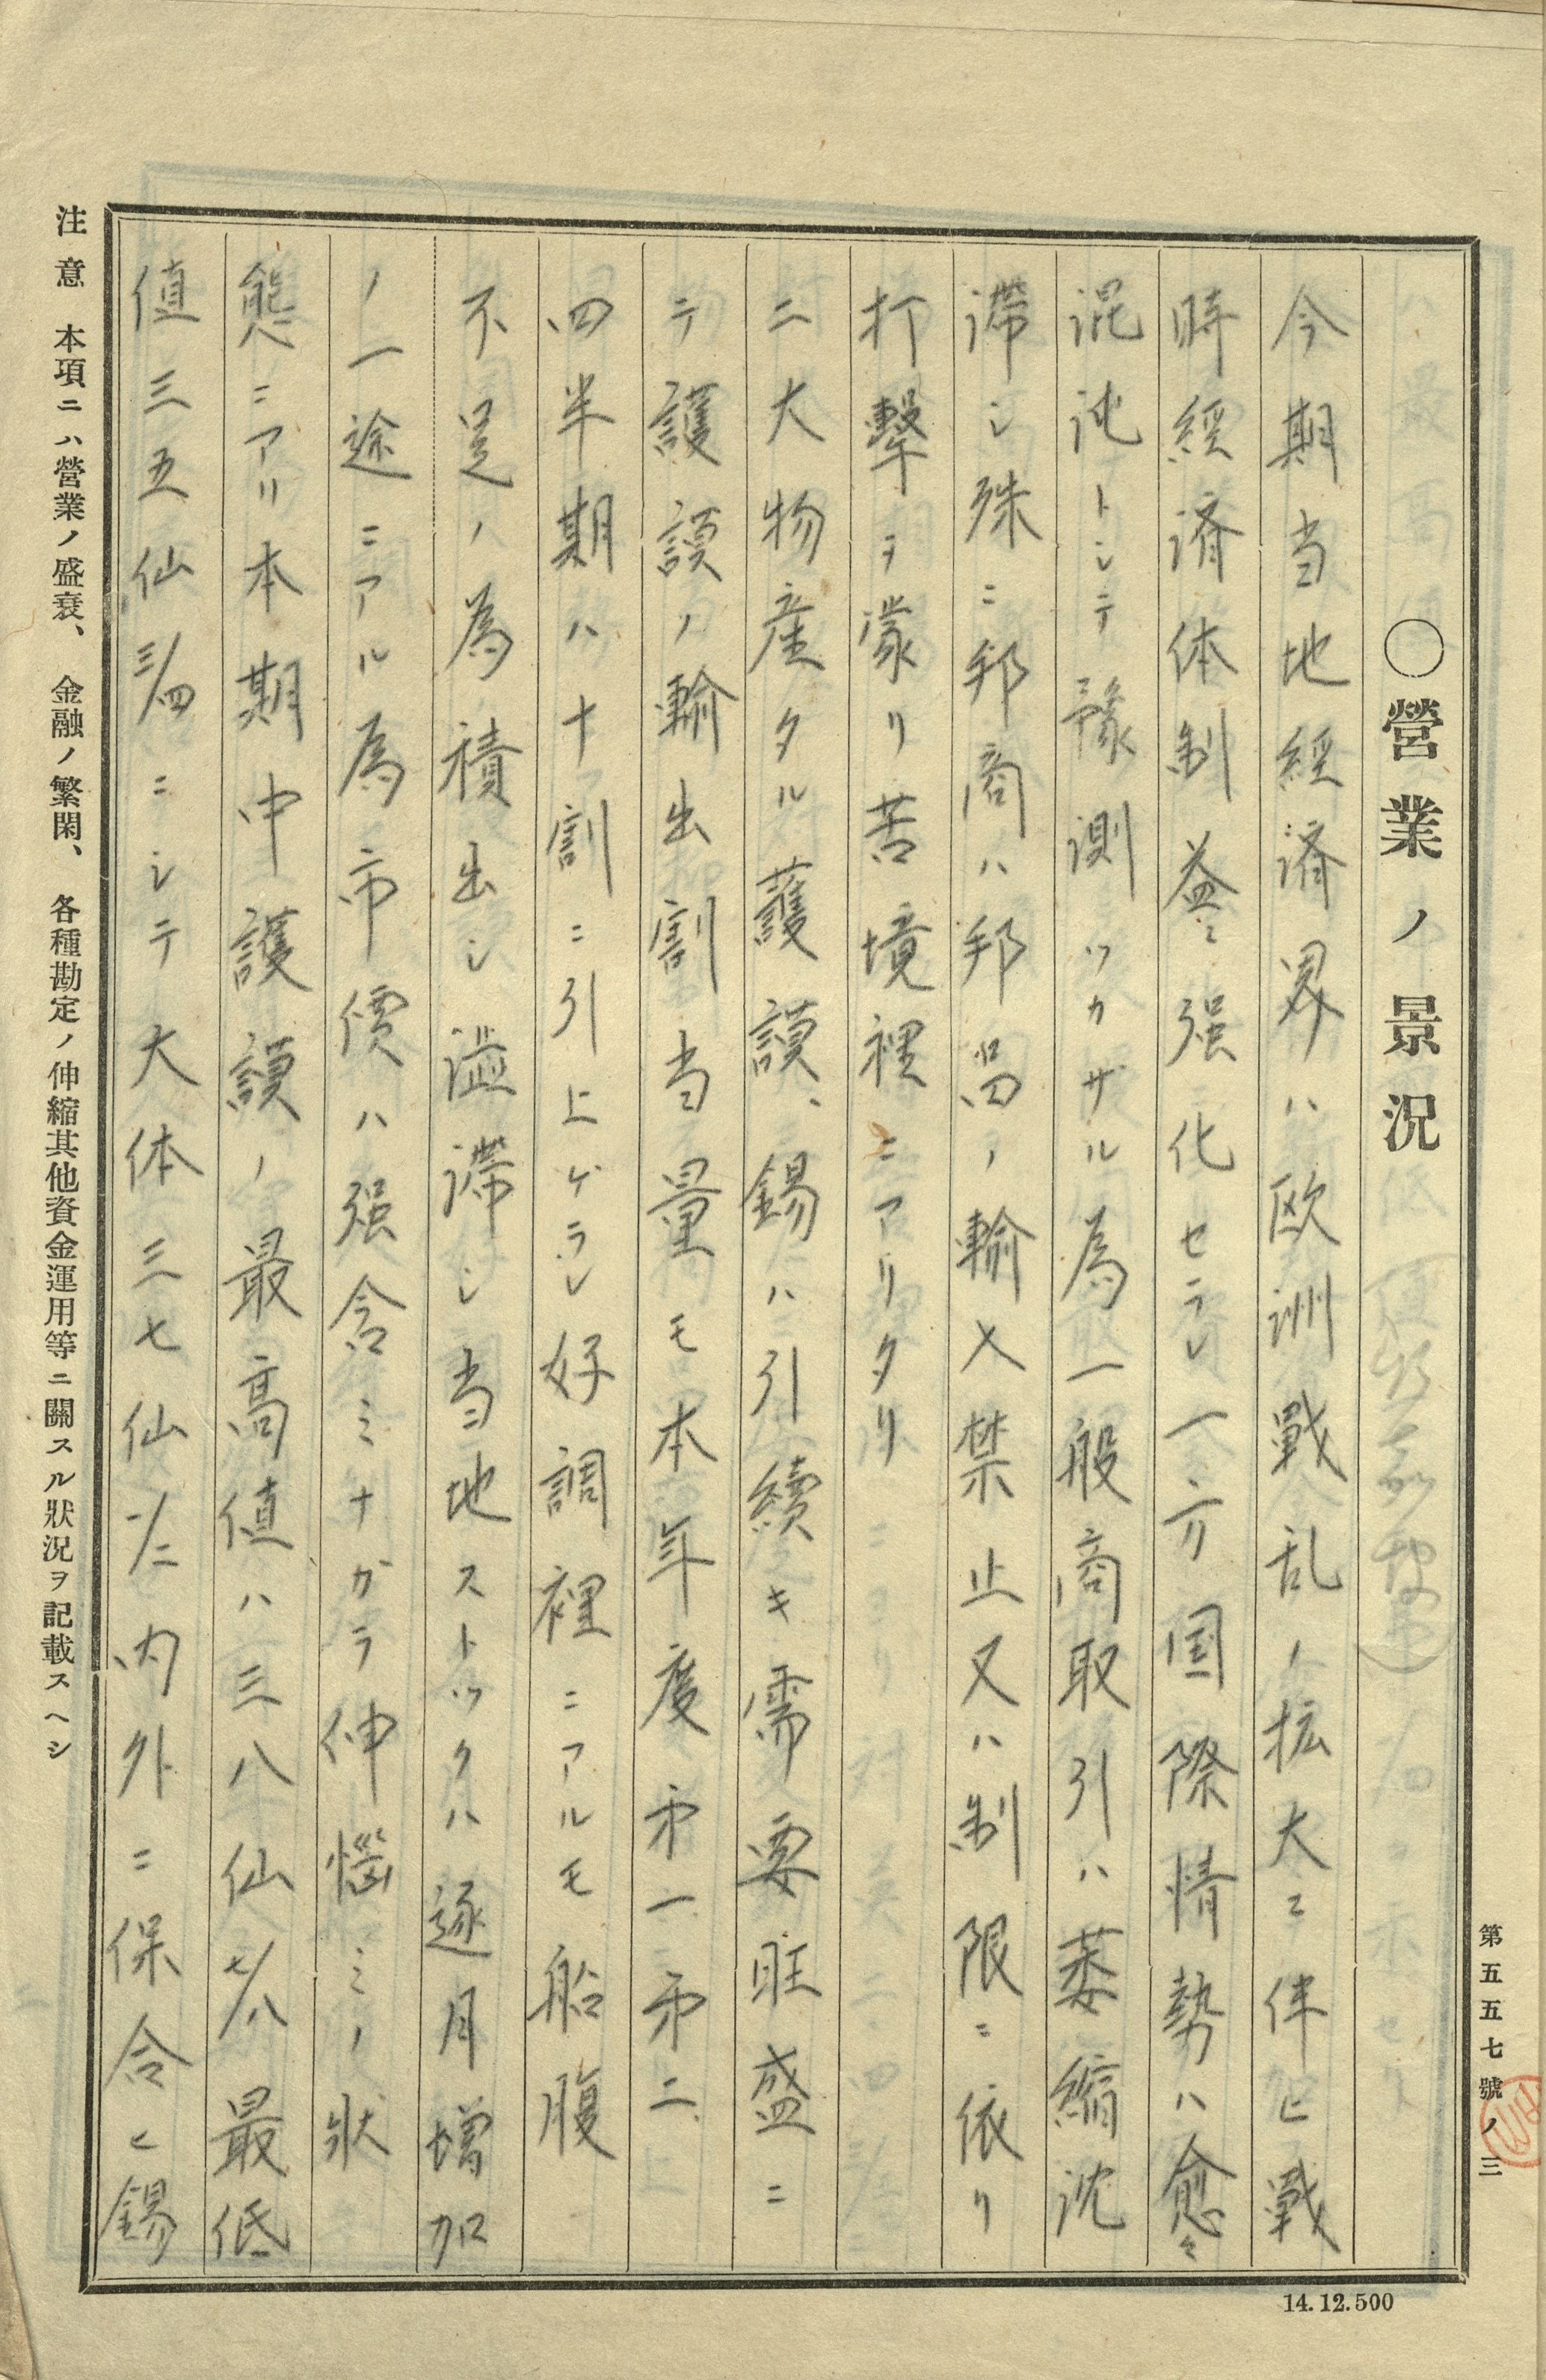 第五五七號ノ三
〇營業ノ景況
今期当地經済界ハ欧洲戰乱ノ拡大ニ伴ヒ戰
時經済体制益々强化セラレ一方国際情勢ハ愈々
混沌トシテ豫測ツカザル為一般商取引ハ萎縮沈
滞シ殊ニ邦商ハ邦品ノ輸入禁止又ハ制限ニ依リ
打擊ヲ蒙リ苦境裡ニアリタリ
二大物産タル護謨、錫ハ引續キ需要旺盛ニ
テ護謨ノ輸出割当量モ本年度㐧一㐧二
四半期ハ十割ニ引上ゲラレ好調裡ニアルモ船腹
不足ノ為積出シ澁滞シ当地ストツクハ逐月增加
ノ一途ニアル為市價ハ强含ミナガラ伸惱ミノ狀
態ニアリ本期中護謨ノ最高値ハ三八仙七/八最低
値三五仙三/四ニシテ大体三七仙一/二内外ニ保合ヒ錫
注意 本項ニハ營業ノ盛衰、金融ノ繁閑、各種勘定ノ伸縮其他資金運用等ニ關スル狀況ヲ記載スヘシ
14.12.500